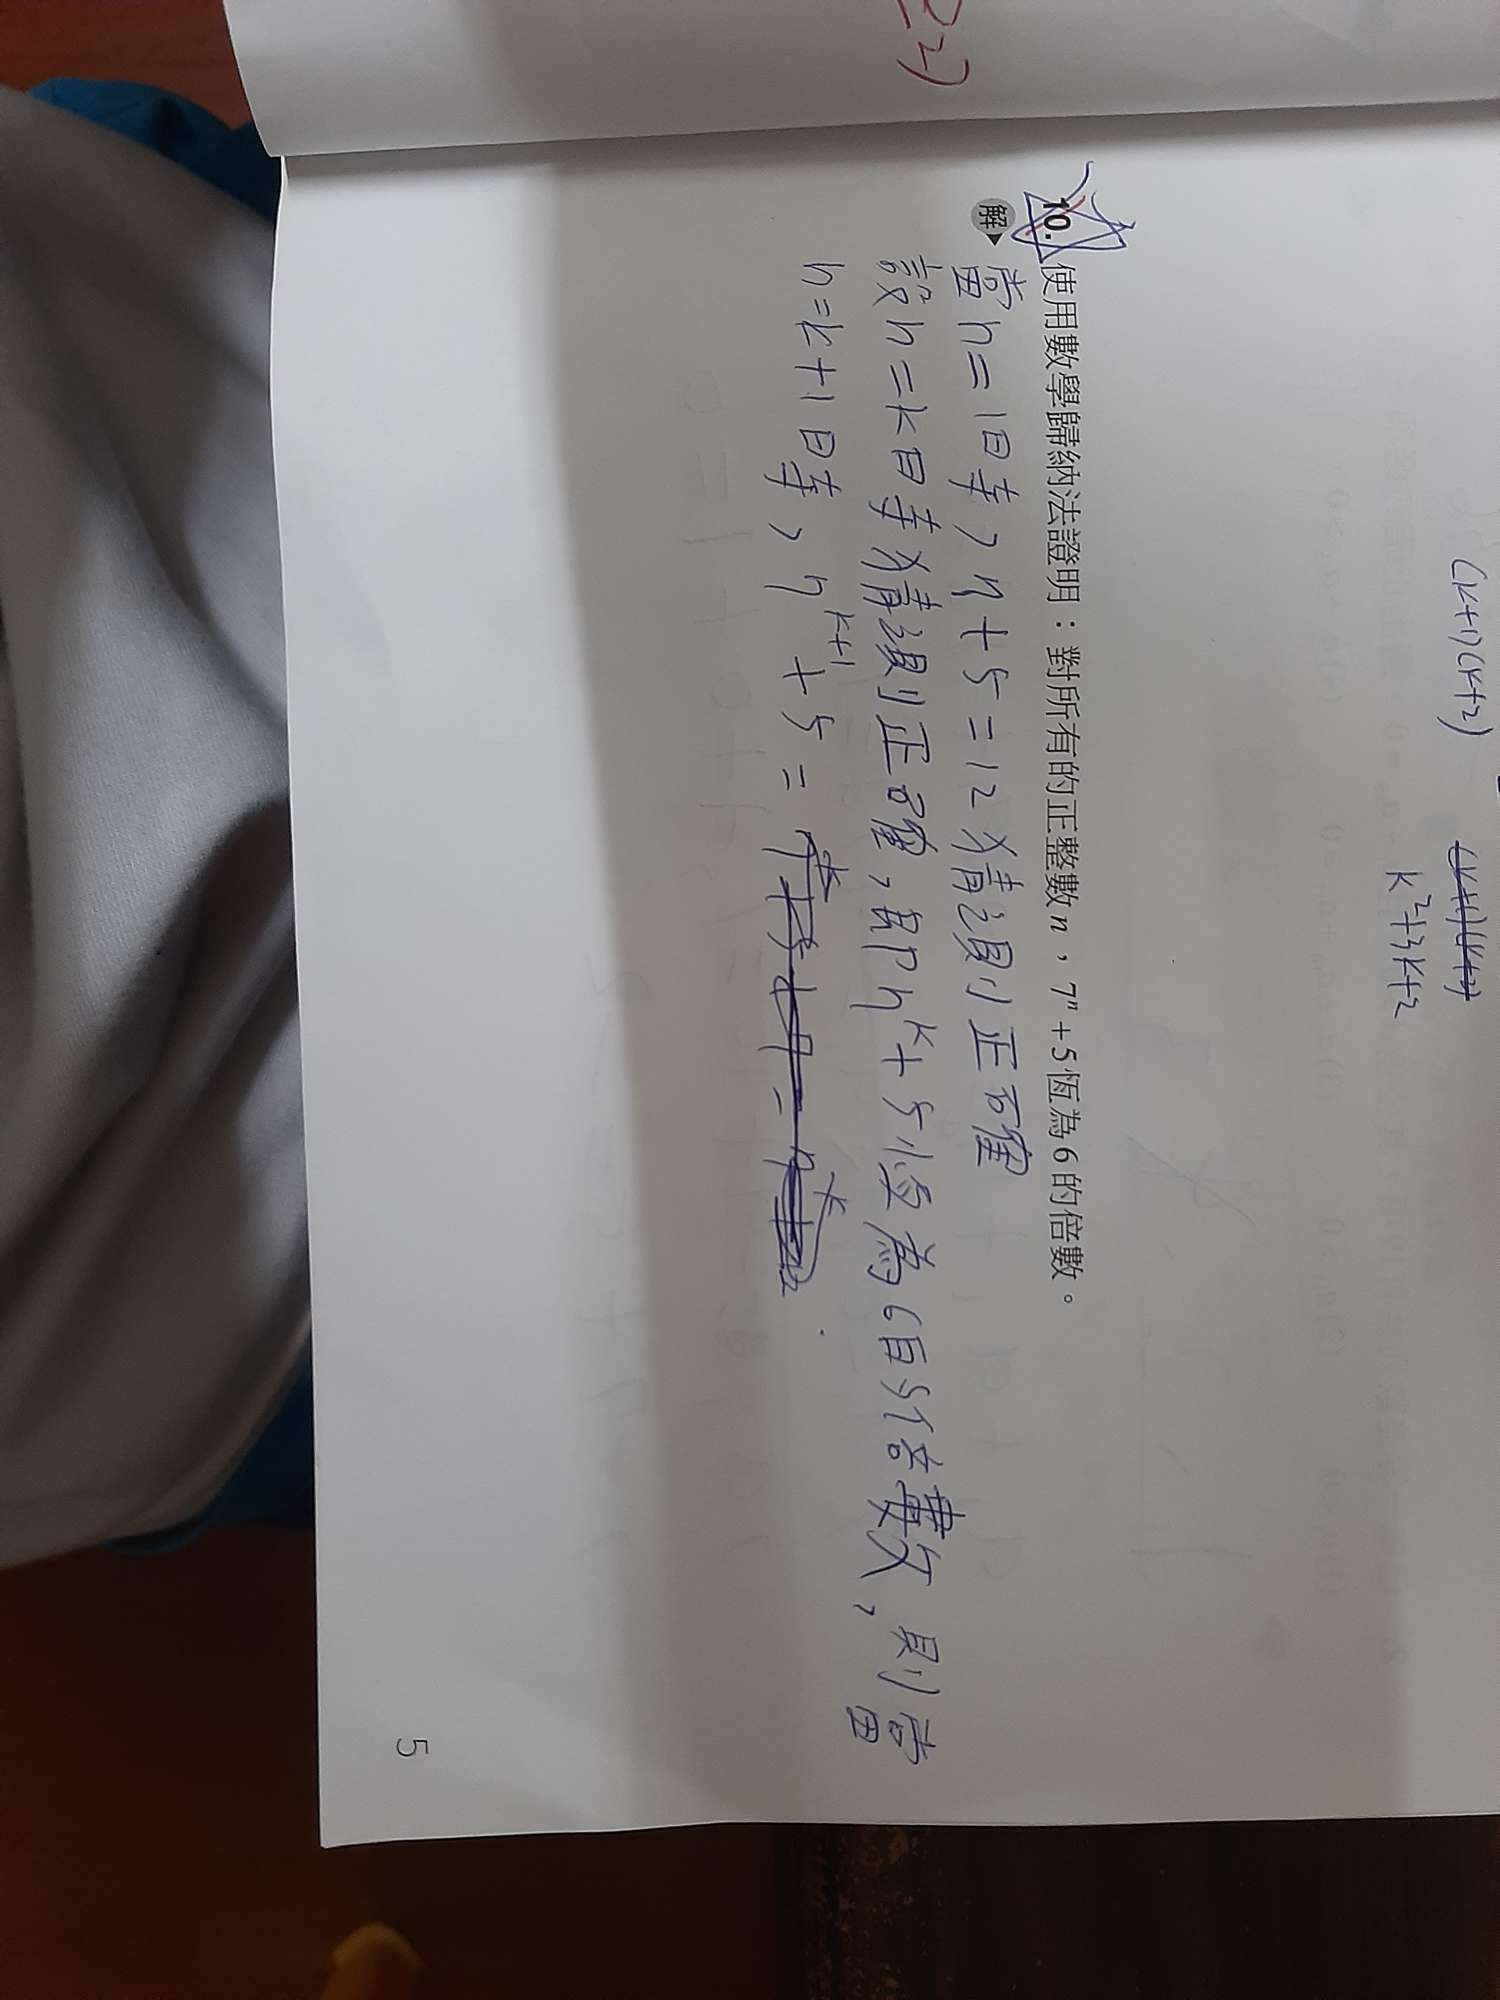 (k+1)(k+2)
k²+3k+2
10. 使用數學歸納法證明：對所有的正整數n，7ⁿ+5恆為6的倍數。
解 當n=1時，7+5=12猜測正確
設n=k時猜測正確，即7ᵏ+5恆為6的倍數，則當
n=k+1時，7ᵏ⁺¹+5=
5